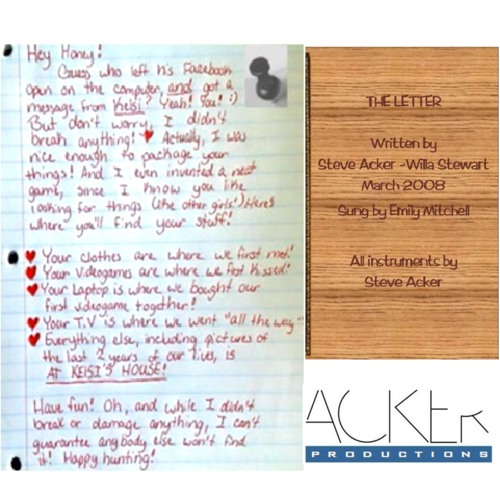 Hey Honey!
Guess who left his Facebook
open on the computer, and got a
message from Keisi? Yeah! You! :)
But don't worry, I didn't
break anything! ♥ Actually, I was
nice enough to package your
things! And I even invented a neat
game, since I know you like
looking for things (like other girls!) Here's
where you'll find your stuff!
♥ Your clothes are where we first met!
♥ Your Videogames are where we first kissed!
♥ Your Laptop is where we bought our
first videogame together!
♥ Your T.V is where we went "all the way"
♥ Everything else, including pictures of
the last 2 years of our lives, is
AT KEISI'S HOUSE!
Have fun! Oh, and while I didn't
break or damage anything, I can't
guarantee anybody else won't find
it! Happy hunting!
THE LETTER
Written by
Steve Acker -Willa Stewart
March 2008
Sung by Emily Mitchell
All instruments by
Steve Acker
ACKER
PRODUCTIONS